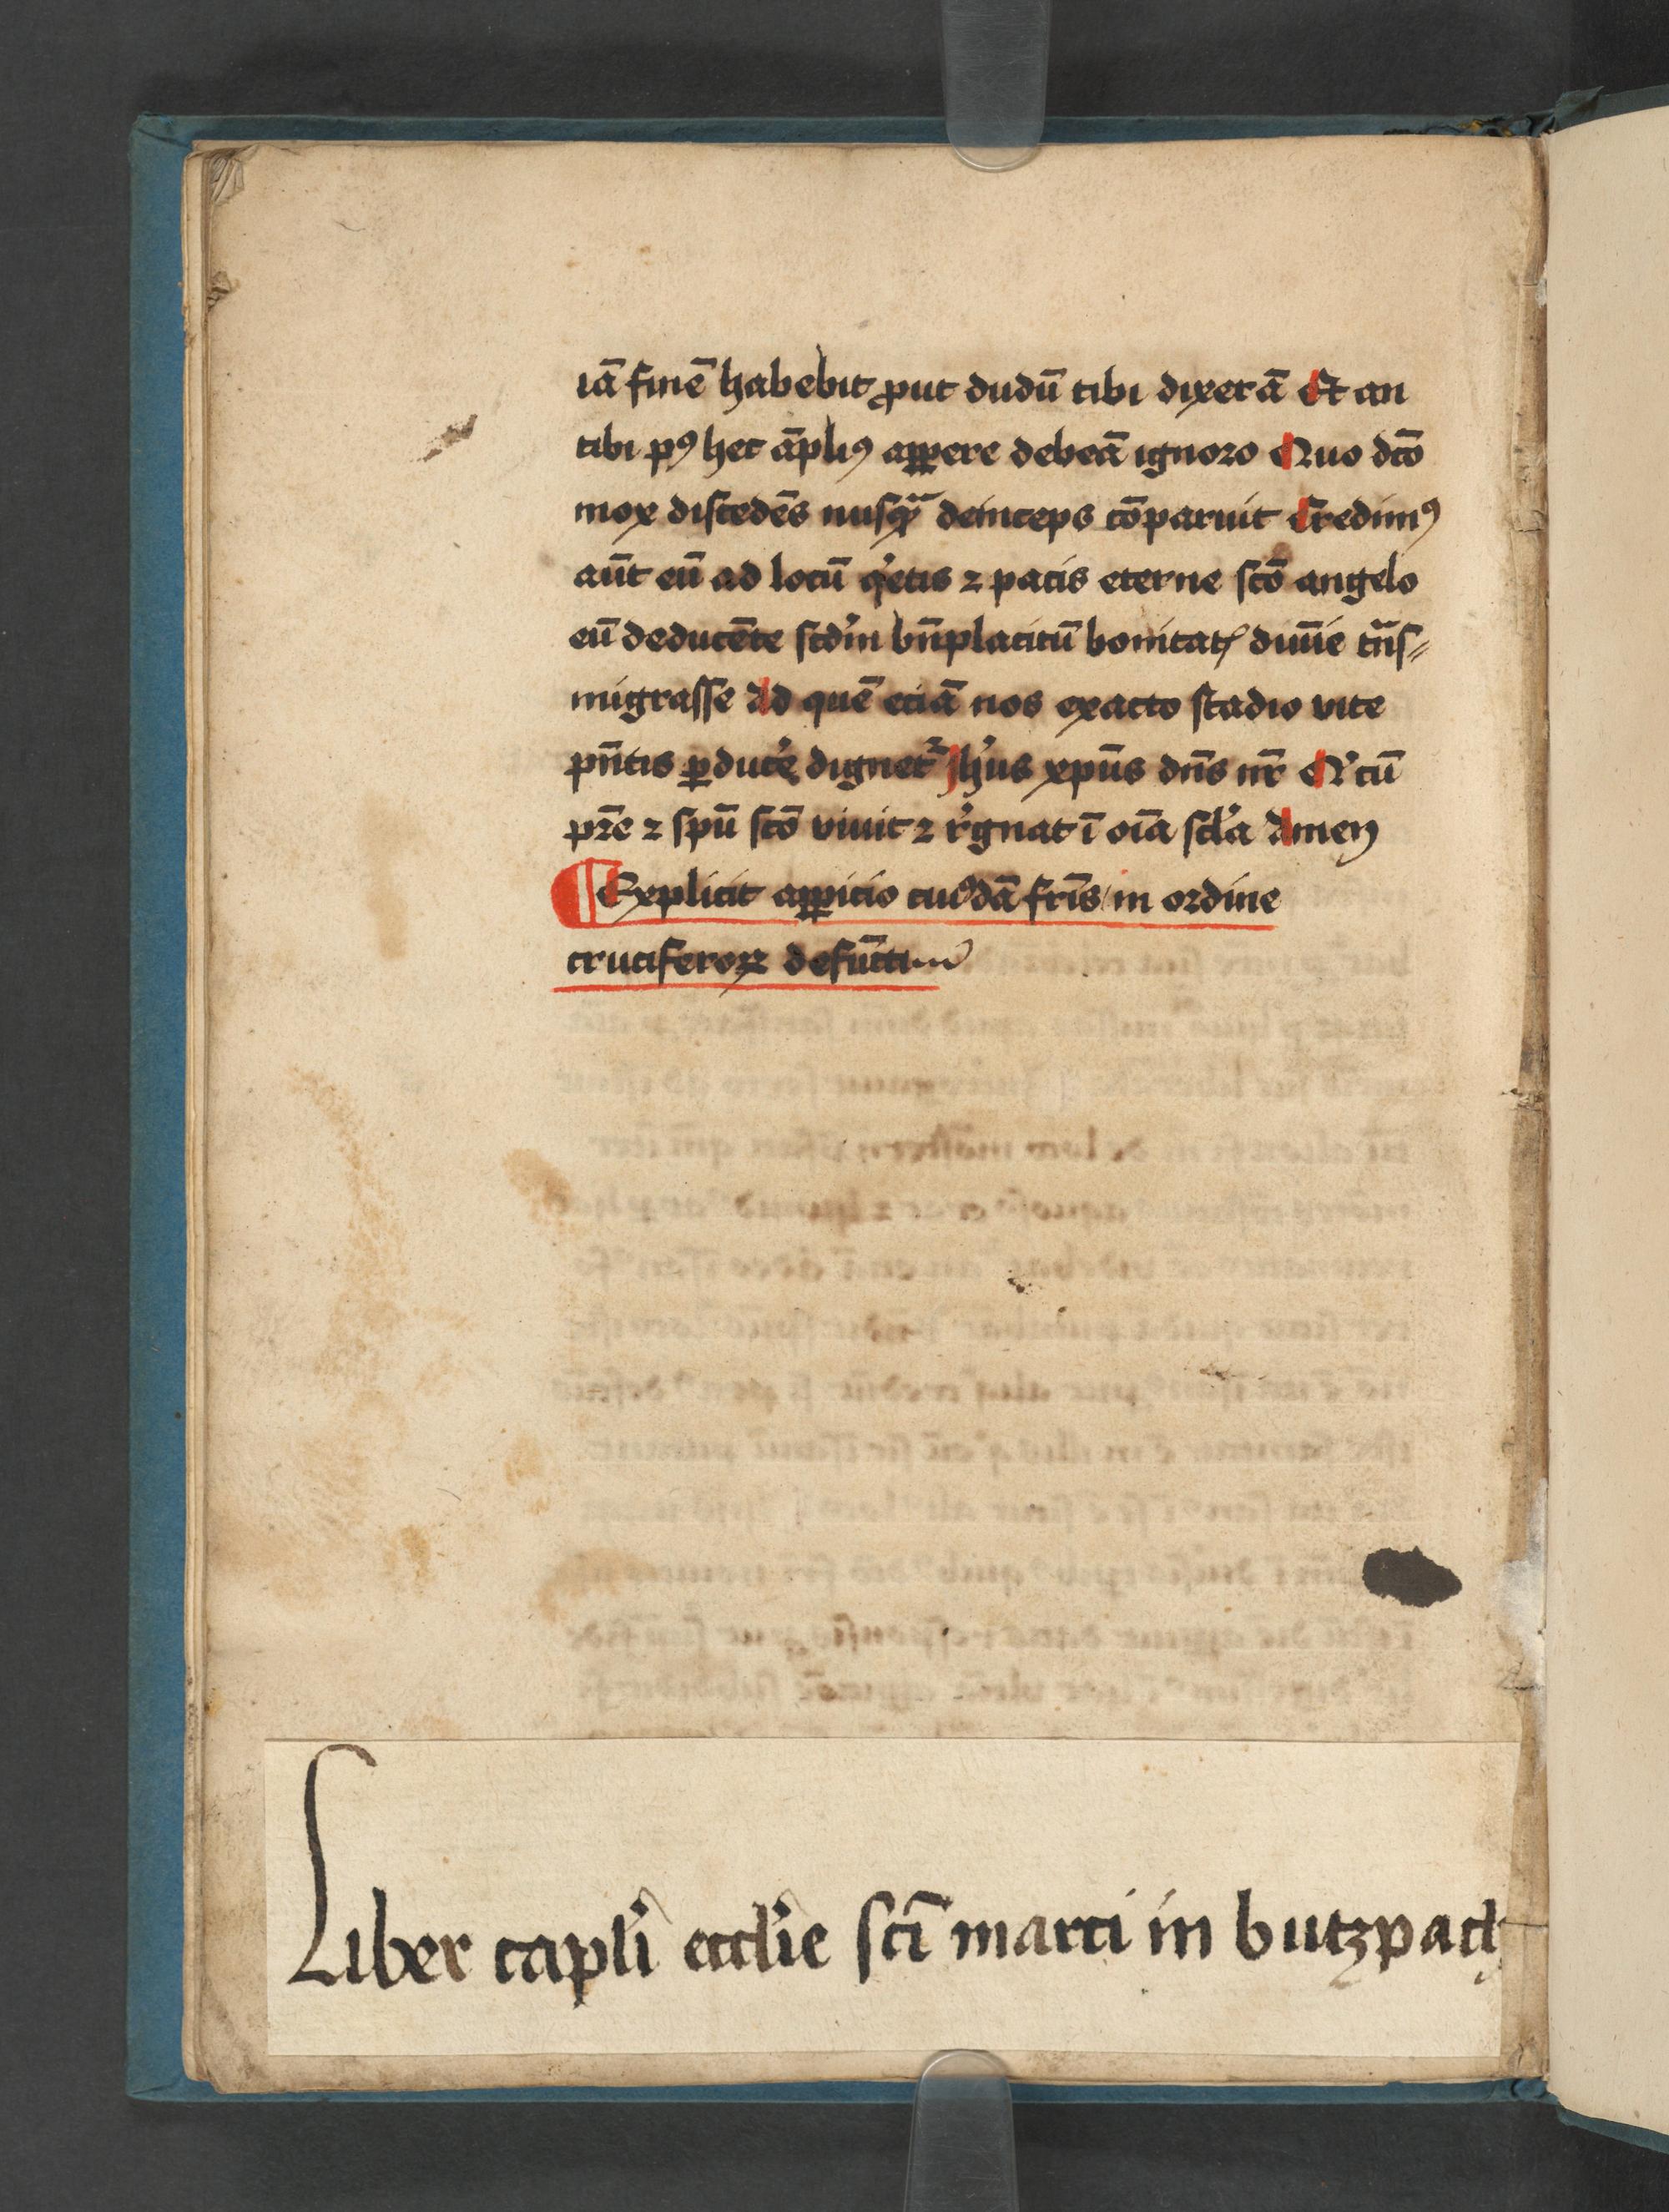 iā finē habebit ꝓut dudū tibi dixerā Et an
tibi pꝰ hec āpliꝰ apꝑere debeā ignoro Quo dc̄o
mox discedēs nusqᷓ deinceps cōparuit Credimꝰ
aūt eū ad locū qͥetis ⁊ pacis eterne sc̄o angelo
eū deducēte scd'm bn̄placitū bonitatꝭ diuīe tᷓns⸗
migrasse Ad quē eciā nos exacto stadio vite
pn̄tis ꝑduc'e dignetᷣ Jh'us xp̄us dn̄s nr̄ Qͥ cū
pr̄e ⁊ sp̄u sc̄o viuit ⁊ r'gnat ī oīa sc'la Amen
¶ Explicit apꝑicio cuiꝰdā fr̄is in ordine
cruciferoꝝ defūcti
Liber capl'i eccl'ie sc̄i marci in butzpach